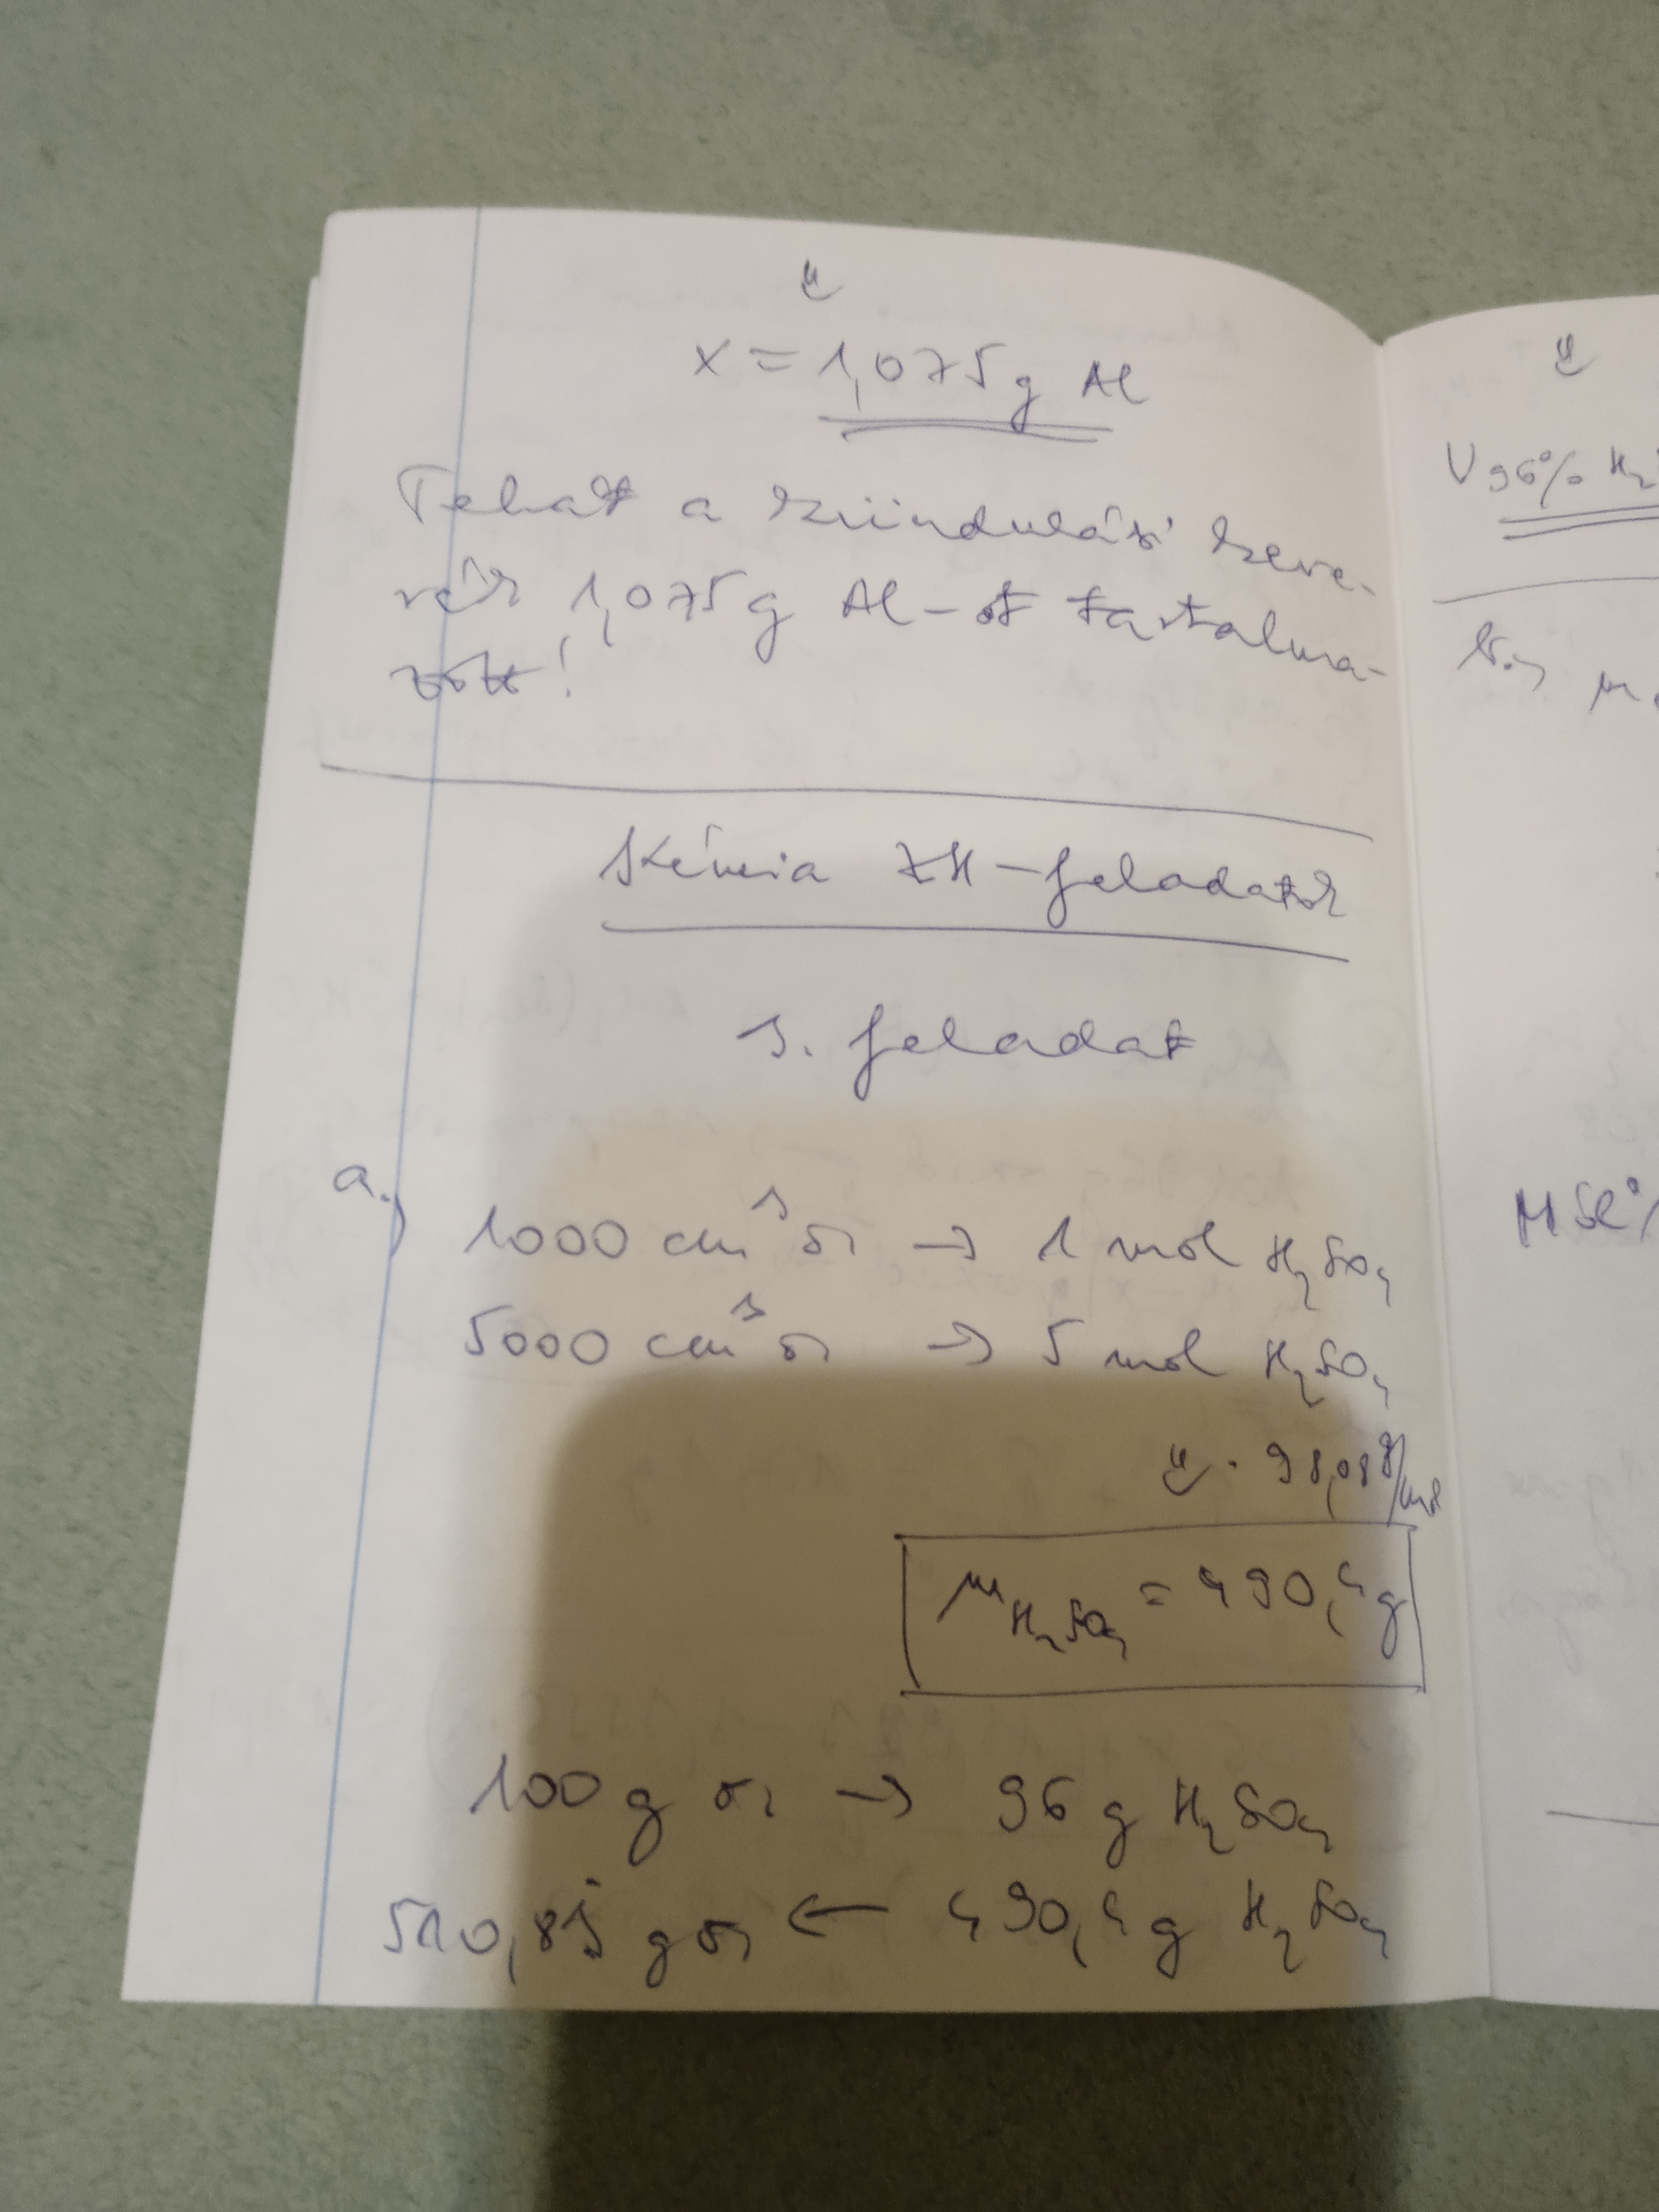 ⇓
x = 1,075 g Al
Tehát a kiindulási keve-
rék 1,075 g Al-ot tartalma-
zott!
Kémia ZH-feladatok
3. feladat
a.)
1000 cm³ o. → 1 mol H₂SO₄
5000 cm³ o. → 5 mol H₂SO₄
⇓ · 98,08 g/mol
m H₂SO₄ = 490,4 g
100 g o. → 96 g H₂SO₄
510,83 g o. ← 490,4 g H₂SO₄
⇓
V 96% H₂
b.)